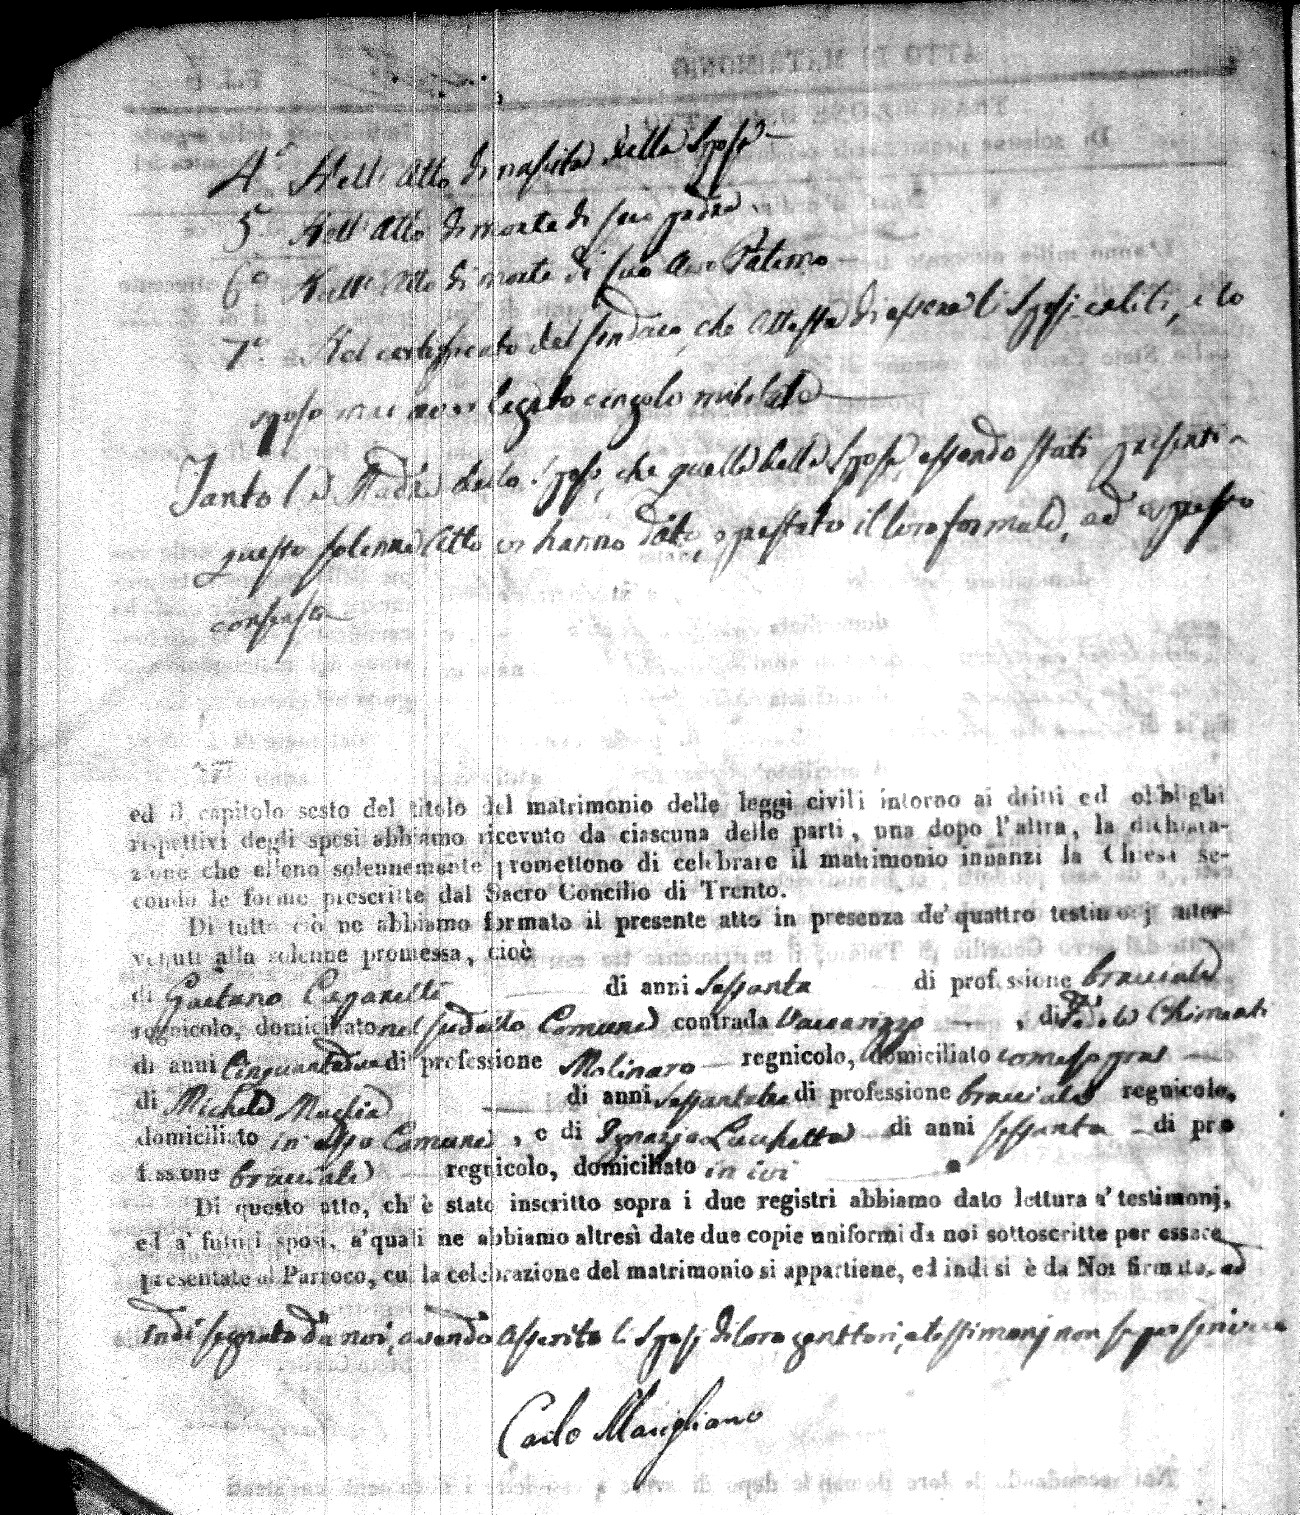 4° Nell' Atto di nascita della Sposa
5° Nell' Atto di morte di suo padre
6° Nell' Atto di morte di suo Avo Paterno
7° Nel certificato del Sindaco, che attesta di essere li Sposi celibi, e lo
sposo cingolo militare
Tanto la Madre dello Sposo, che quella della Sposa essendo stati presenti
questo solenne Atto hanno dato prestato il loro formale, ed espresso
consenso
ed il capitolo sesto del titolo del matrimonio delle leggi civili intorno ai dritti ed obblighi
rispettivi degli sposi abbiamo ricevuto da ciascuna delle parti, una dopo l'altra, la dichiara-
zione che elleno solennemente promettono di celebrare il matrimonio innanzi la Chiesa se-
condo le forme prescritte dal Sacro Concilio di Trento.
Di tutto ciò ne abbiamo formato il presente atto in presenza de' quattro testimonj inter-
venuti alla solenne promessa, cioè
di Gaetano di anni sessanta di professione bracciale
regnicolo, domiciliato nel sudetto Comune contrada Vaccarizzo, di Fedele Chimenti
di anni cinquantadue di professione Molinaro regnicolo, domiciliato come sopra
di Michele Macchia di anni di professione bracciale regnicolo,
domiciliato in esso Comune, e di Ignazio Lucchetta di anni sessanta di pro
fessione bracciale regnicolo, domiciliato in ivi
Di questo atto, ch' è stato inscritto sopra i due registri abbiamo dato lettura a' testimonj,
ed a' futuri sposi, a' quali ne abbiamo altresì date due copie uniformi da noi sottoscritte per essere
presentate al Parroco, cui la celebrazione del matrimonio si appartiene, ed indi si è da Noi firmato, ed
indi segnato da noi, avendo asserito li Sposi di loro genitori, e testimonj non saper scrivere
Carlo Marigliano